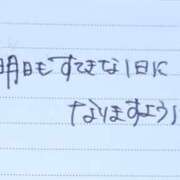 明日もすてきな1日に
なりますよう